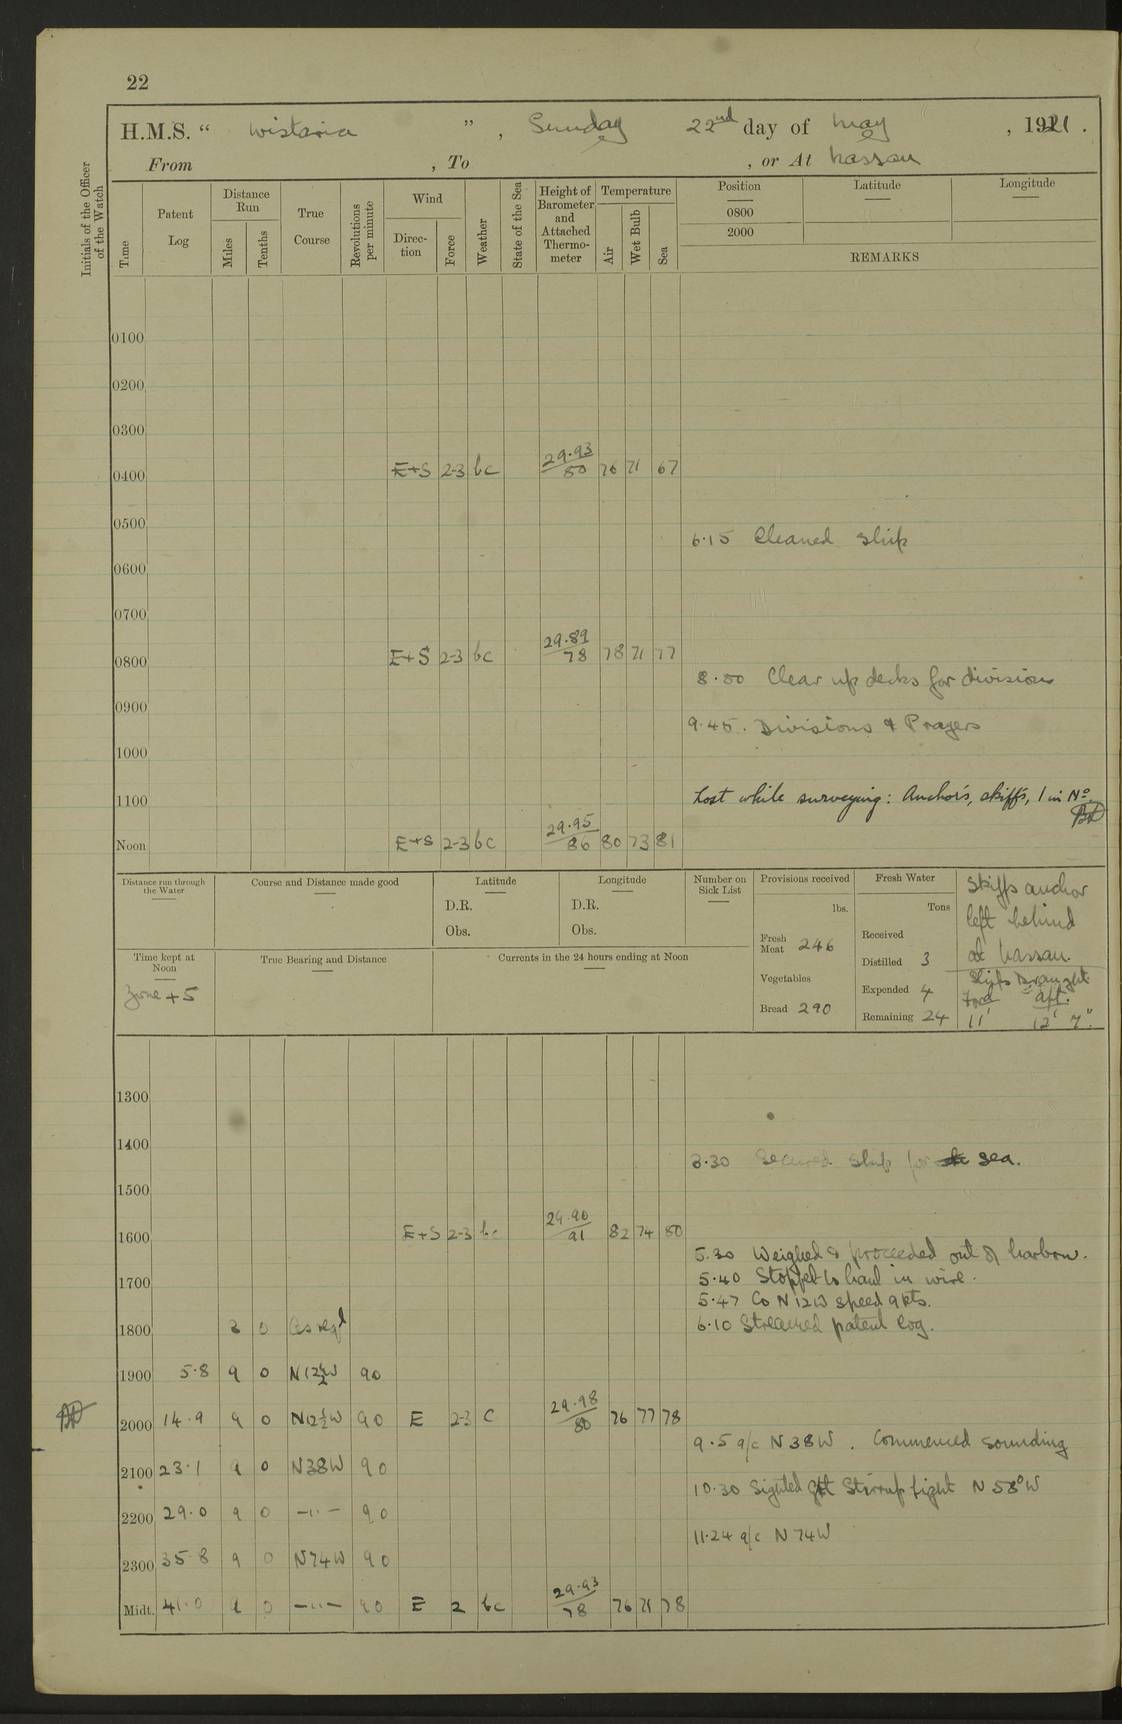 22
H.M.S. “ Wistaria ” , Sunday 22nd day of May , 1921 .
From , To , or At Nassau
Initials of the Officer of the Watch
Time
Patent Log
Distance Run
Miles
Tenths
True Course
Revolutions per minute
Wind
Direc-tion
Force
Weather
State of the Sea
Height of Barometer and Attached Thermo-meter
Temperature
Air
Wet Bulb
Sea
Position Latitude Longitude
0800
2000
REMARKS
0100
0200
0300
0400 E+S 2-3 bc 29.93/80 76 71 67
0500
6.15 Cleaned ship
0600
0700
0800 E+S 2-3 bc 29.89/78 78 71 77
8.50 Clear up decks for divisions
0900
9.45. Divisions & Prayers
1000
1100 Lost while surveying: Anchors, skiffs, 1 in No.
Noon E+S 2-3 bc 29.95/86 80 73 81
Distance run through the Water
Course and Distance made good
Latitude
D.R.
Obs.
Longitude
D.R.
Obs.
Number on Sick List
Provisions received
lbs.
Fresh Meat 246
Vegetables
Bread 290
Fresh Water
Tons
Received
Distilled 3
Expended 4
Remaining 24
Skiffs anchor
left behind
at Nassau.
Ships Draught
Ford aft.
11' 12' 7".
Time kept at Noon
Zone +5
True Bearing and Distance
Currents in the 24 hours ending at Noon
1300
1400
3.30 Secured ship for sea.
1500
1600 E+S 2-3 bc 29.90/91 82 74 80
5.30 Weighed & proceeded out of harbour.
5.40 Stopped to haul in wire.
1700
5.47 Co N12W speed 9 kts.
6.10 Streamed patent log.
1800 3 0 As reqd
1900 5.8 9 0 N12½W 90
2000 14.9 9 0 N12½W 90 E 2-3 C 29.98/80 76 77 78
9.5 a/c N38W . Commenced sounding
2100 23.1 9 0 N38W 90
10.30 Sighted Gt Stirrup Light N 58° W
2200 29.0 9 0 –..– 90
11.24 a/c N 74W
2300 35.8 9 0 N74W 90
Midt. 41.0 9 0 –..– 90 E 2 bc 29.93/78 76 71 78